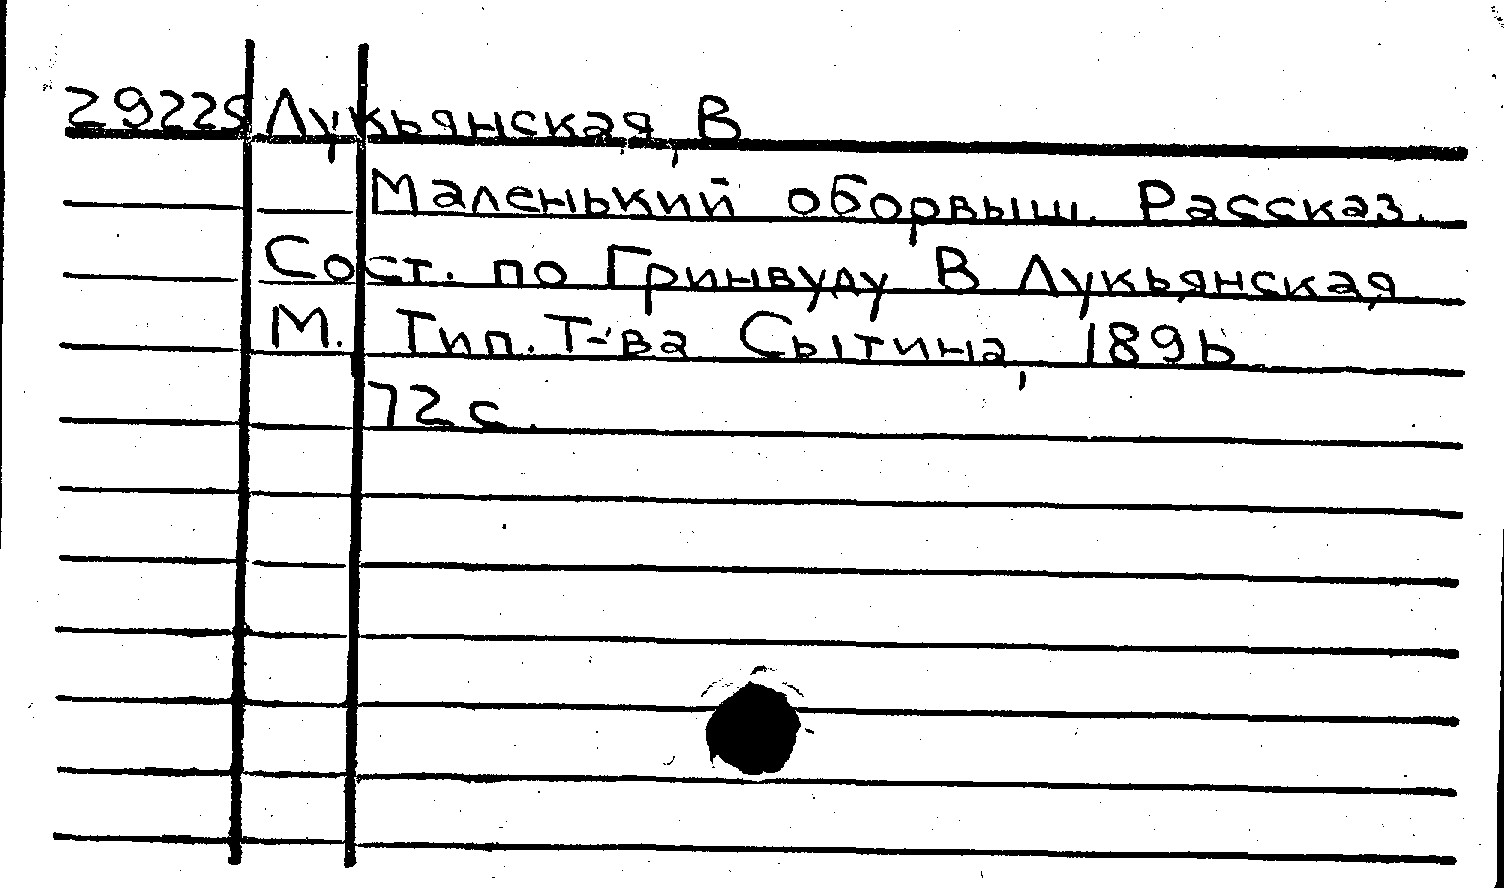 29225 Лукьянская, В
Маленький оборвыш. Рассказ.
Сост. по Гринвуду В Лукьянская,
М. Тип. Т-ва Сытина, 1896
72 с.